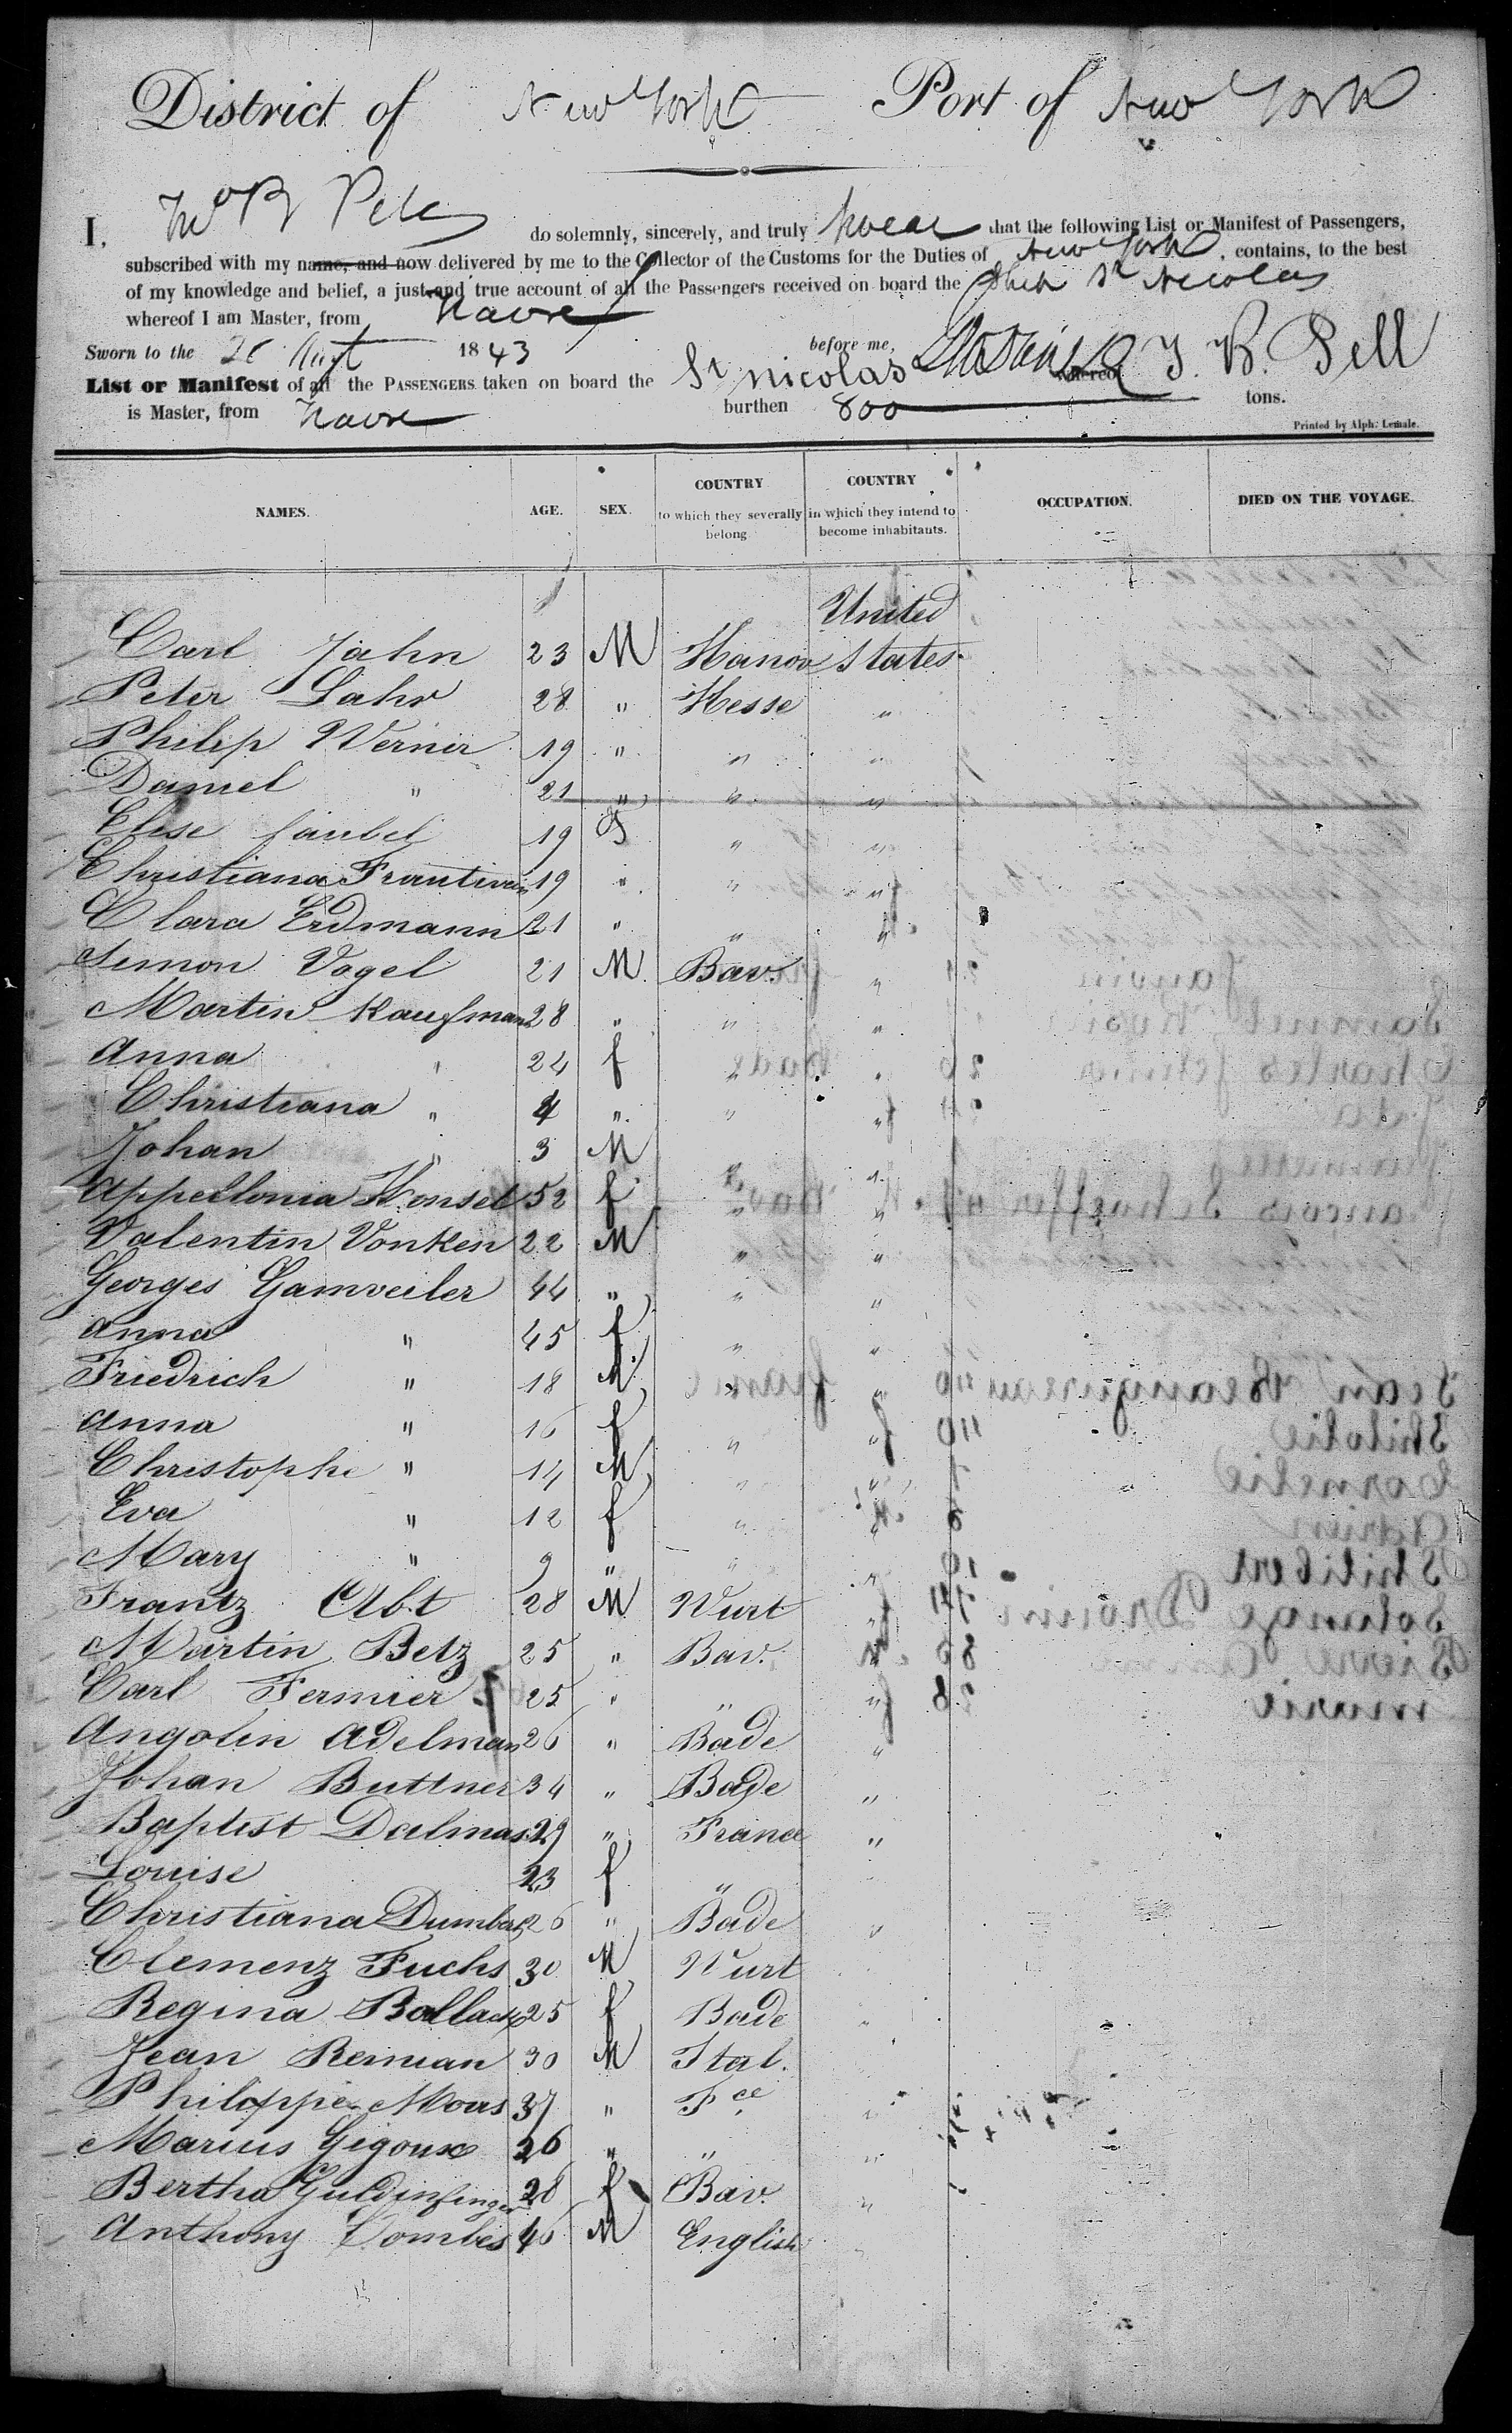 District of New York Port of New York
I, do solemnly, sincerely, and truly swear that the following List or Manifest of Passengers,
subscribed with my name, and now delivered by me to the Collector of the Customs for the Duties of New York, contains, to the best
of my knowledge and belief, a just and true account of all the Passengers received on board the Ship St Nicolas
whereof I am Master, from Havre
Sworn to the 26 Augt 1843 before me,
List or Manifest of all the PASSENGERS taken on board the St Nicolas whereof J. B. Pell
is Master, from Havre burthen 800 tons.
Printed by Alph: Lemale.
NAMES. AGE. SEX. COUNTRY to which they severally belong COUNTRY in which they intend to become inhabitants. OCCUPATION. DIED ON THE VOYAGE.
United
Carl Jahn 23 M Hanov States
Peter Lahr 28 " Hesse "
Philip Werner 19 " " "
Daniel " 21 " " "
Elise 19 F " "
Christiana 19 " " "
Clara Erdmann 21 " " "
Simon Vogel 21 M Bav. "
Martin Kaufmann 28 " " "
Anna " 24 f " "
Christiana " 4 " " "
Johan " 3 M " "
Appellonia Honsel 52 f " "
Valentin Vonken 22 M " "
Georges Gamweiler 44 " " "
Anna " 45 f " "
Friedrich " 18 M " "
Anna " 16 f " "
Christophe " 14 M " "
Eva " 12 f " "
Mary " 9 " " "
Frantz Abt 28 M Wurt "
Martin Betz 25 " Bav. "
Carl Fermier 25 " " "
Angolin Adelman 26 " Bade "
Johan Buttner 34 " Bade "
Baptist Dalmas 29 " France "
Louise 23 f "
Christiana 26 " Bade "
Clemenz Fuchs 30 M Wurt
Regina 25 f Bade "
Jean Remian 30 M Ital.
Philippe Mous 37 " Fce "
Marius Gigoux 26 " " "
Bertha Guldinfinger 28 f Bav. "
Anthony Combes 46 M English